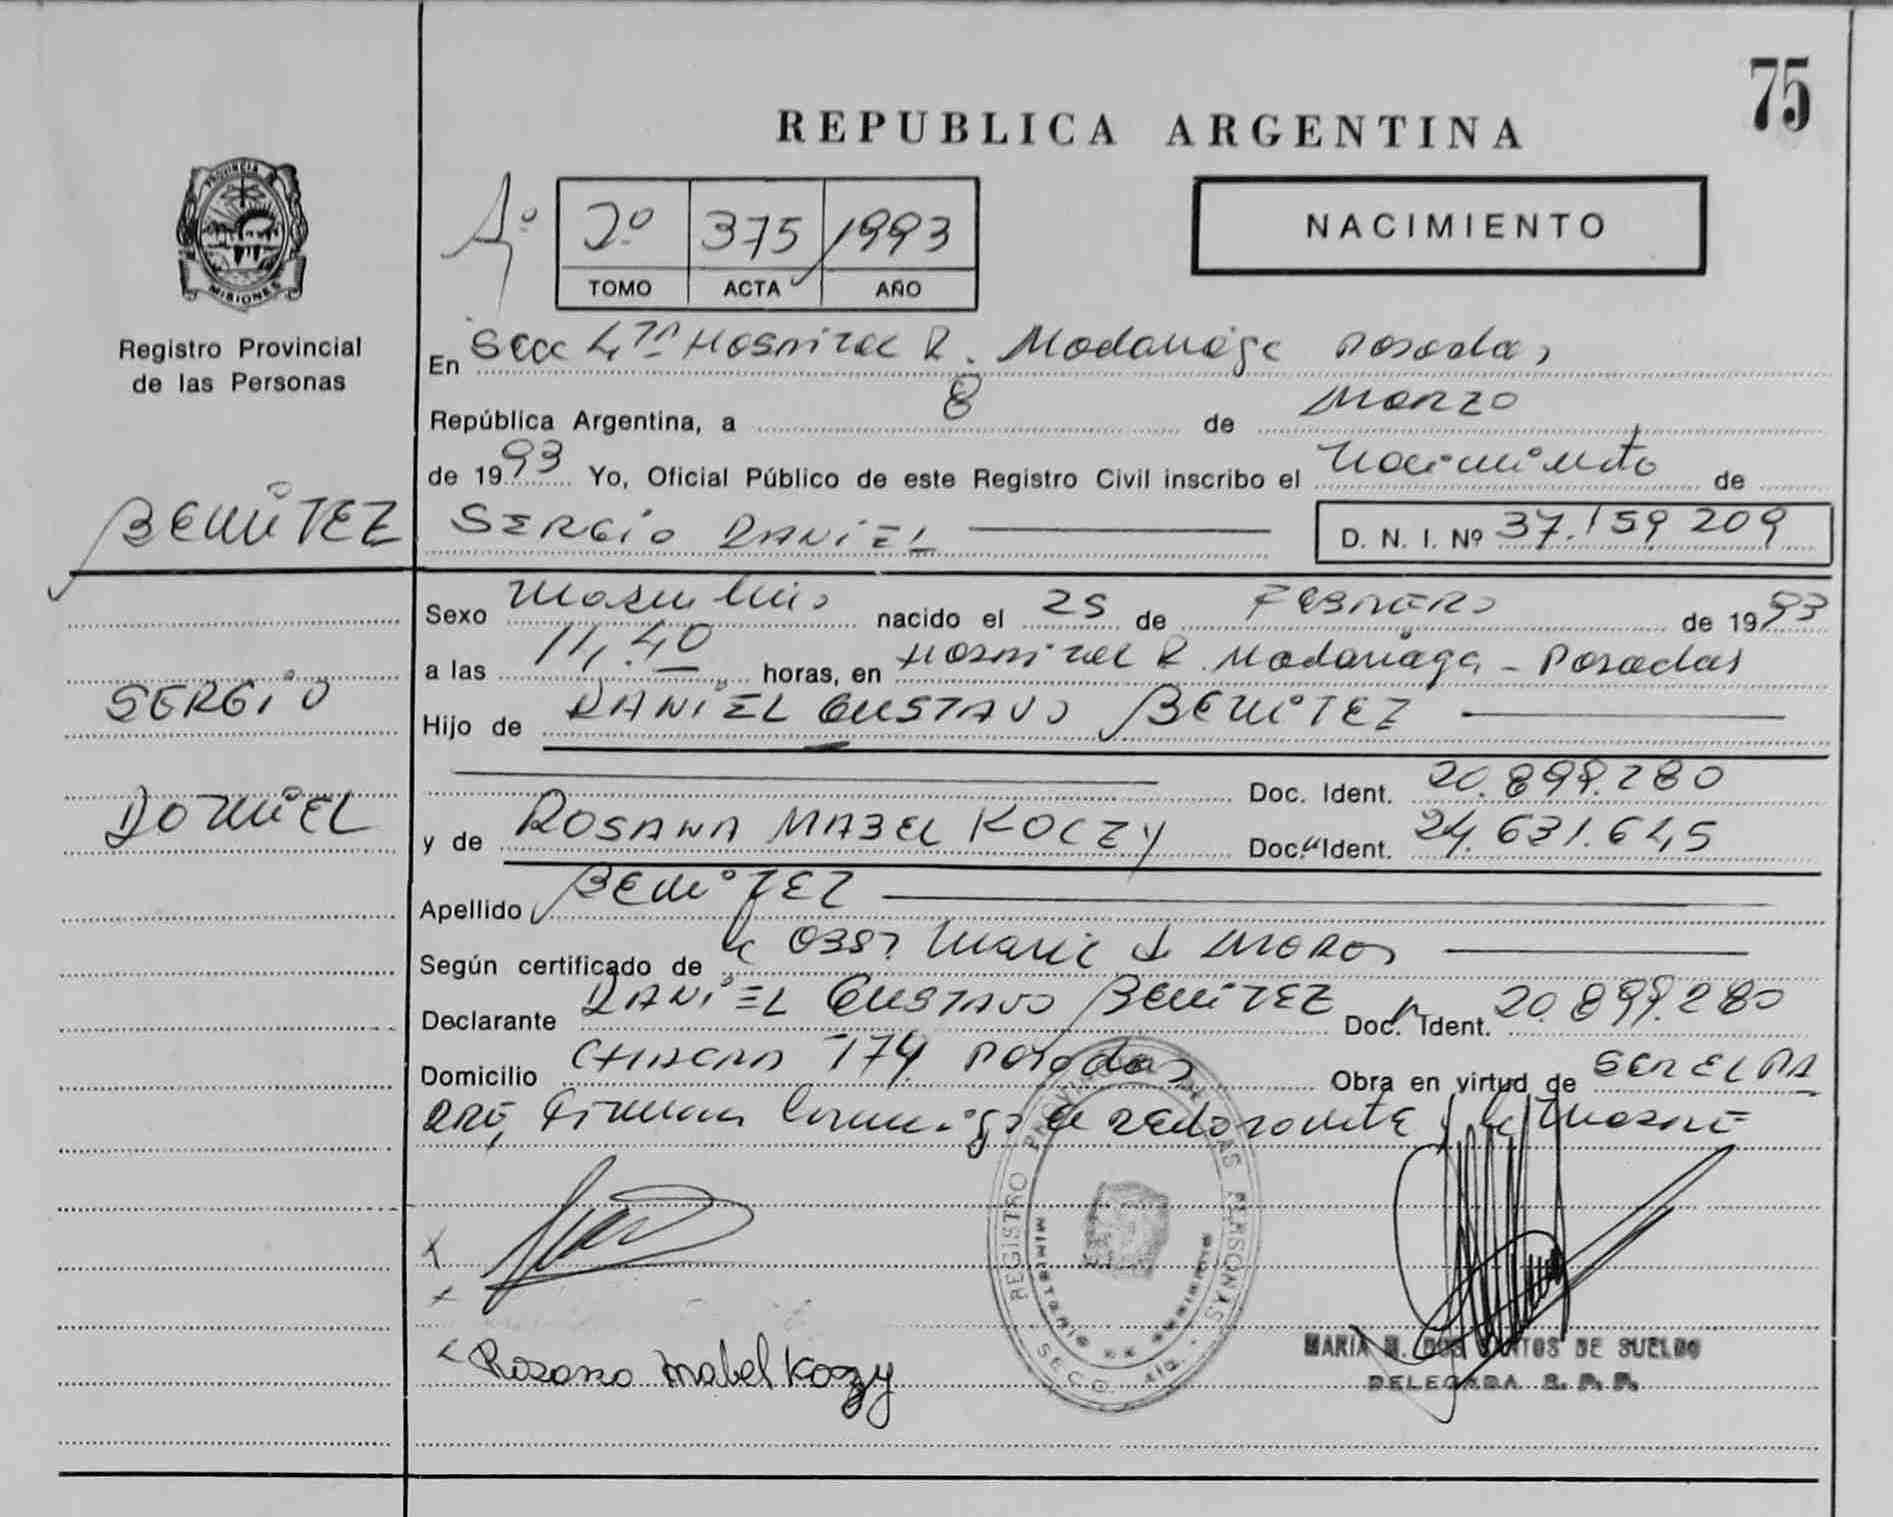 75
REPUBLICA ARGENTINA
PROVINCIA DE MISIONES
Registro Provincial
de las Personas
Aº 2º 375 1993
TOMO ACTA AÑO
NACIMIENTO
En Secc 4ta Hospital R. Madariaga Posadas
República Argentina, a 8 de Marzo
de 1993 Yo, Oficial Público de este Registro Civil inscribo el Nacimiento de
BENITEZ SERGIO DANIEL D. N. I. Nº 37.159 209
Sexo Masculino nacido el 25 de FEBRERO de 1993
a las 11,40 horas, en Hospital R. Madariaga - Posadas
SERGIO
Hijo de DANIEL GUSTAVO BENITEZ
Doc. Ident. 20.899.280
DANIEL
y de ROSANA MABEL KOCZY Doc. Ident. 24.631.645
Apellido BENITEZ
Según certificado de
Declarante DANIEL GUSTAVO BENITEZ Doc. Ident. 20.899.280
Domicilio 174 Posadas Obra en virtud de
Firman conmigo el declarante y la
REGISTRO PROVINCIAL DE LAS PERSONAS
MINISTERIO DE GOBIERNO
SECC. 4ta.
Rosana Mabel Koczy
MARIA M. DOS SANTOS DE SUELDO
DELEGADA R. P. P.